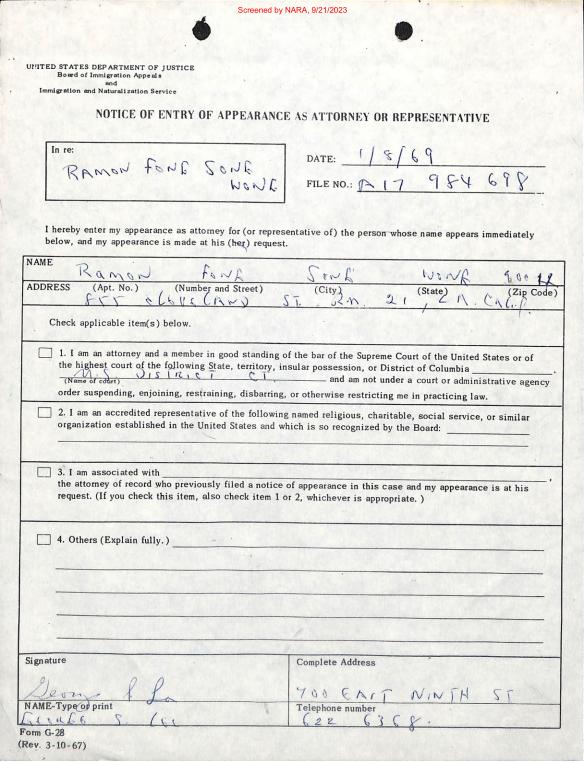 Screened by NARA, 9/21/2023
UNITED STATES DEPARTMENT OF JUSTICE
Board of Immigration Appeals
and
Immigration and Naturalization Service
NOTICE OF ENTRY OF APPEARANCE AS ATTORNEY OR REPRESENTATIVE
In re:
RAMON FONG SONG
WONG
DATE: 1/8/69
FILE NO.: A17 984 698
I hereby enter my appearance as attorney for (or representative of) the person whose name appears immediately
below, and my appearance is made at his (her) request.
NAME
Ramon FONG SONG WONG
ADDRESS (Apt. No.) (Number and Street) (City) (State) (Zip Code)
855 ST. RM. 21, L.A. Calif
Check applicable item(s) below.
1. I am an attorney and a member in good standing of the bar of the Supreme Court of the United States or of
the highest court of the following State, territory, insular possession, or District of Columbia
U.S. DISTRICT CT.
(Name of court) and am not under a court or administrative agency
order suspending, enjoining, restraining, disbarring, or otherwise restricting me in practicing law.
2. I am an accredited representative of the following named religious, charitable, social service, or similar
organization established in the United States and which is so recognized by the Board:
3. I am associated with ,
the attorney of record who previously filed a notice of appearance in this case and my appearance is at his
request. (If you check this item, also check item 1 or 2, whichever is appropriate. )
4. Others (Explain fully.)
Signature
Complete Address
700 EAST NINTH ST
NAME-Type or print
Telephone number
622 6368.
Form G-28
(Rev. 3-10-67)